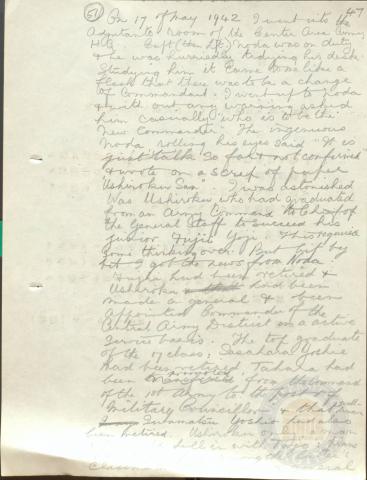 (51) 47
On 17 of May 1942 I went into the
Adjutants room of the Center Area Army
H.Q. Capt (then Lt) Noda was on duty
& he was hurriedly tidying his desk.
Studying him it came to me like a
flash that there was to be a change
of Commander. I went up to Noda
& with out any warning asked
him casually "who is to be the
new Commander" The ingenuous
Noda, rolling his eyes said "It is
just talk so far & not confirmed"
& wrote on a scrap of paper
"Ushiroku San". I was astonished
Was Ushiroku who had graduated
from an Army Command to Chief of
the General Staff to succeed his
junior Fujii Yogi. This required
some thinking over. But bit by
bit I got the news from Noda.
Fujii had been retired &
Ushiroku had been
made a general & been
appointed Commander of the
Central Army District on a active
service basis. The top graduate
of the 17 class, Sasahara Yoshio
had been retired. Tahara had
been promoted from the command
of the 1st Army to the post of
Military Councillor & that man
Iwamatsu Yoshio had also
been retired. Ushiroku only
still in with
Classm